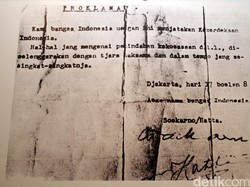 PROKLAMASI
Kami bangsa Indonesia dengan ini menjatakan Kemerdekaan
Indonesia.
Hal-hal jang mengenai pemindahan kekoeasaan d.l.l., di-
selenggarakan dengan tjara saksama dan dalam tempo jang se-
singkat-singkatnja.
Djakarta, hari 17 boelan 8
Atas nama bangsa Indonesia
Soekarno/Hatta.
detikcom